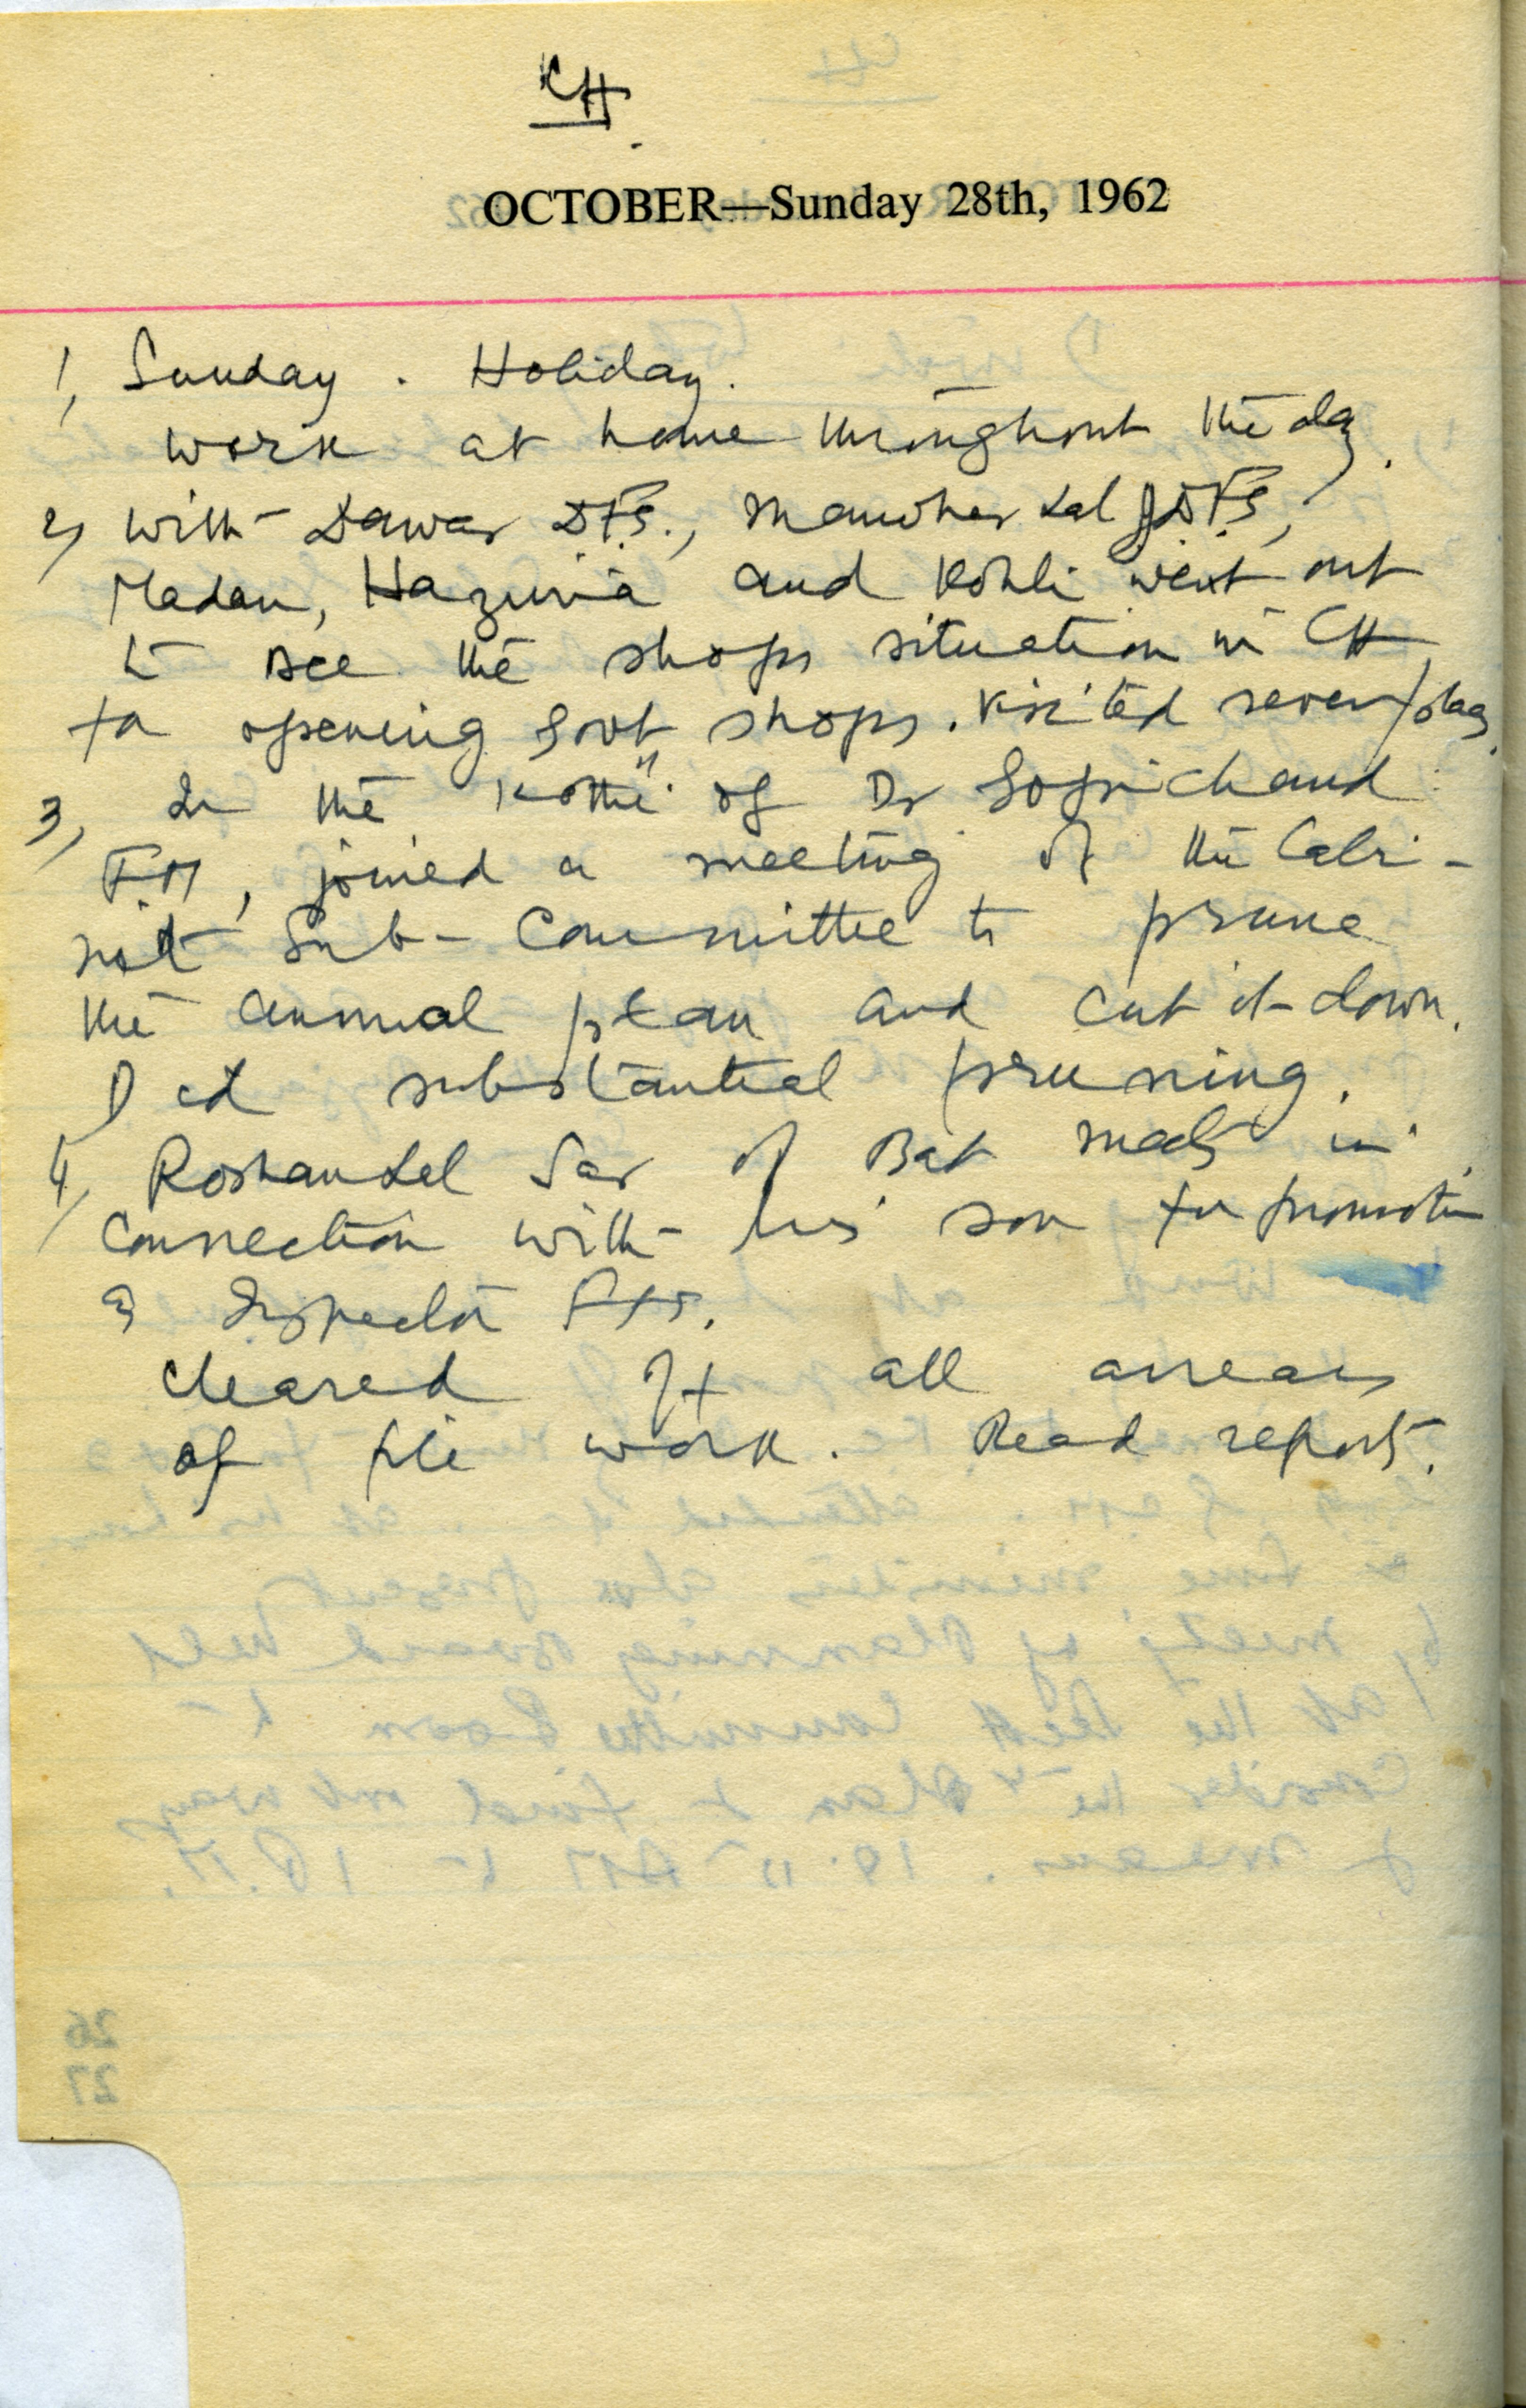 CH.
OCTOBER—Sunday 28th, 1962
1, Sunday. Holiday.
work at home throughout the day.
2, With Dawar DFS., Manohar Lal JDFS,
Madan, and Kohli went out
to see the shops situation in CH,
for opening Govt shops. Visited several places.
3, In the "Kothi" of Dr Gopichand
FM, joined a meeting of the Cabi-
net Sub-Committee to prune
the annual plan and cut it down.
Did substantial pruning.
4, Roshan Lal of meets in
connection with his son for promotion
as Inspector
cleared all arrears
of file work. Read reports.
26
27